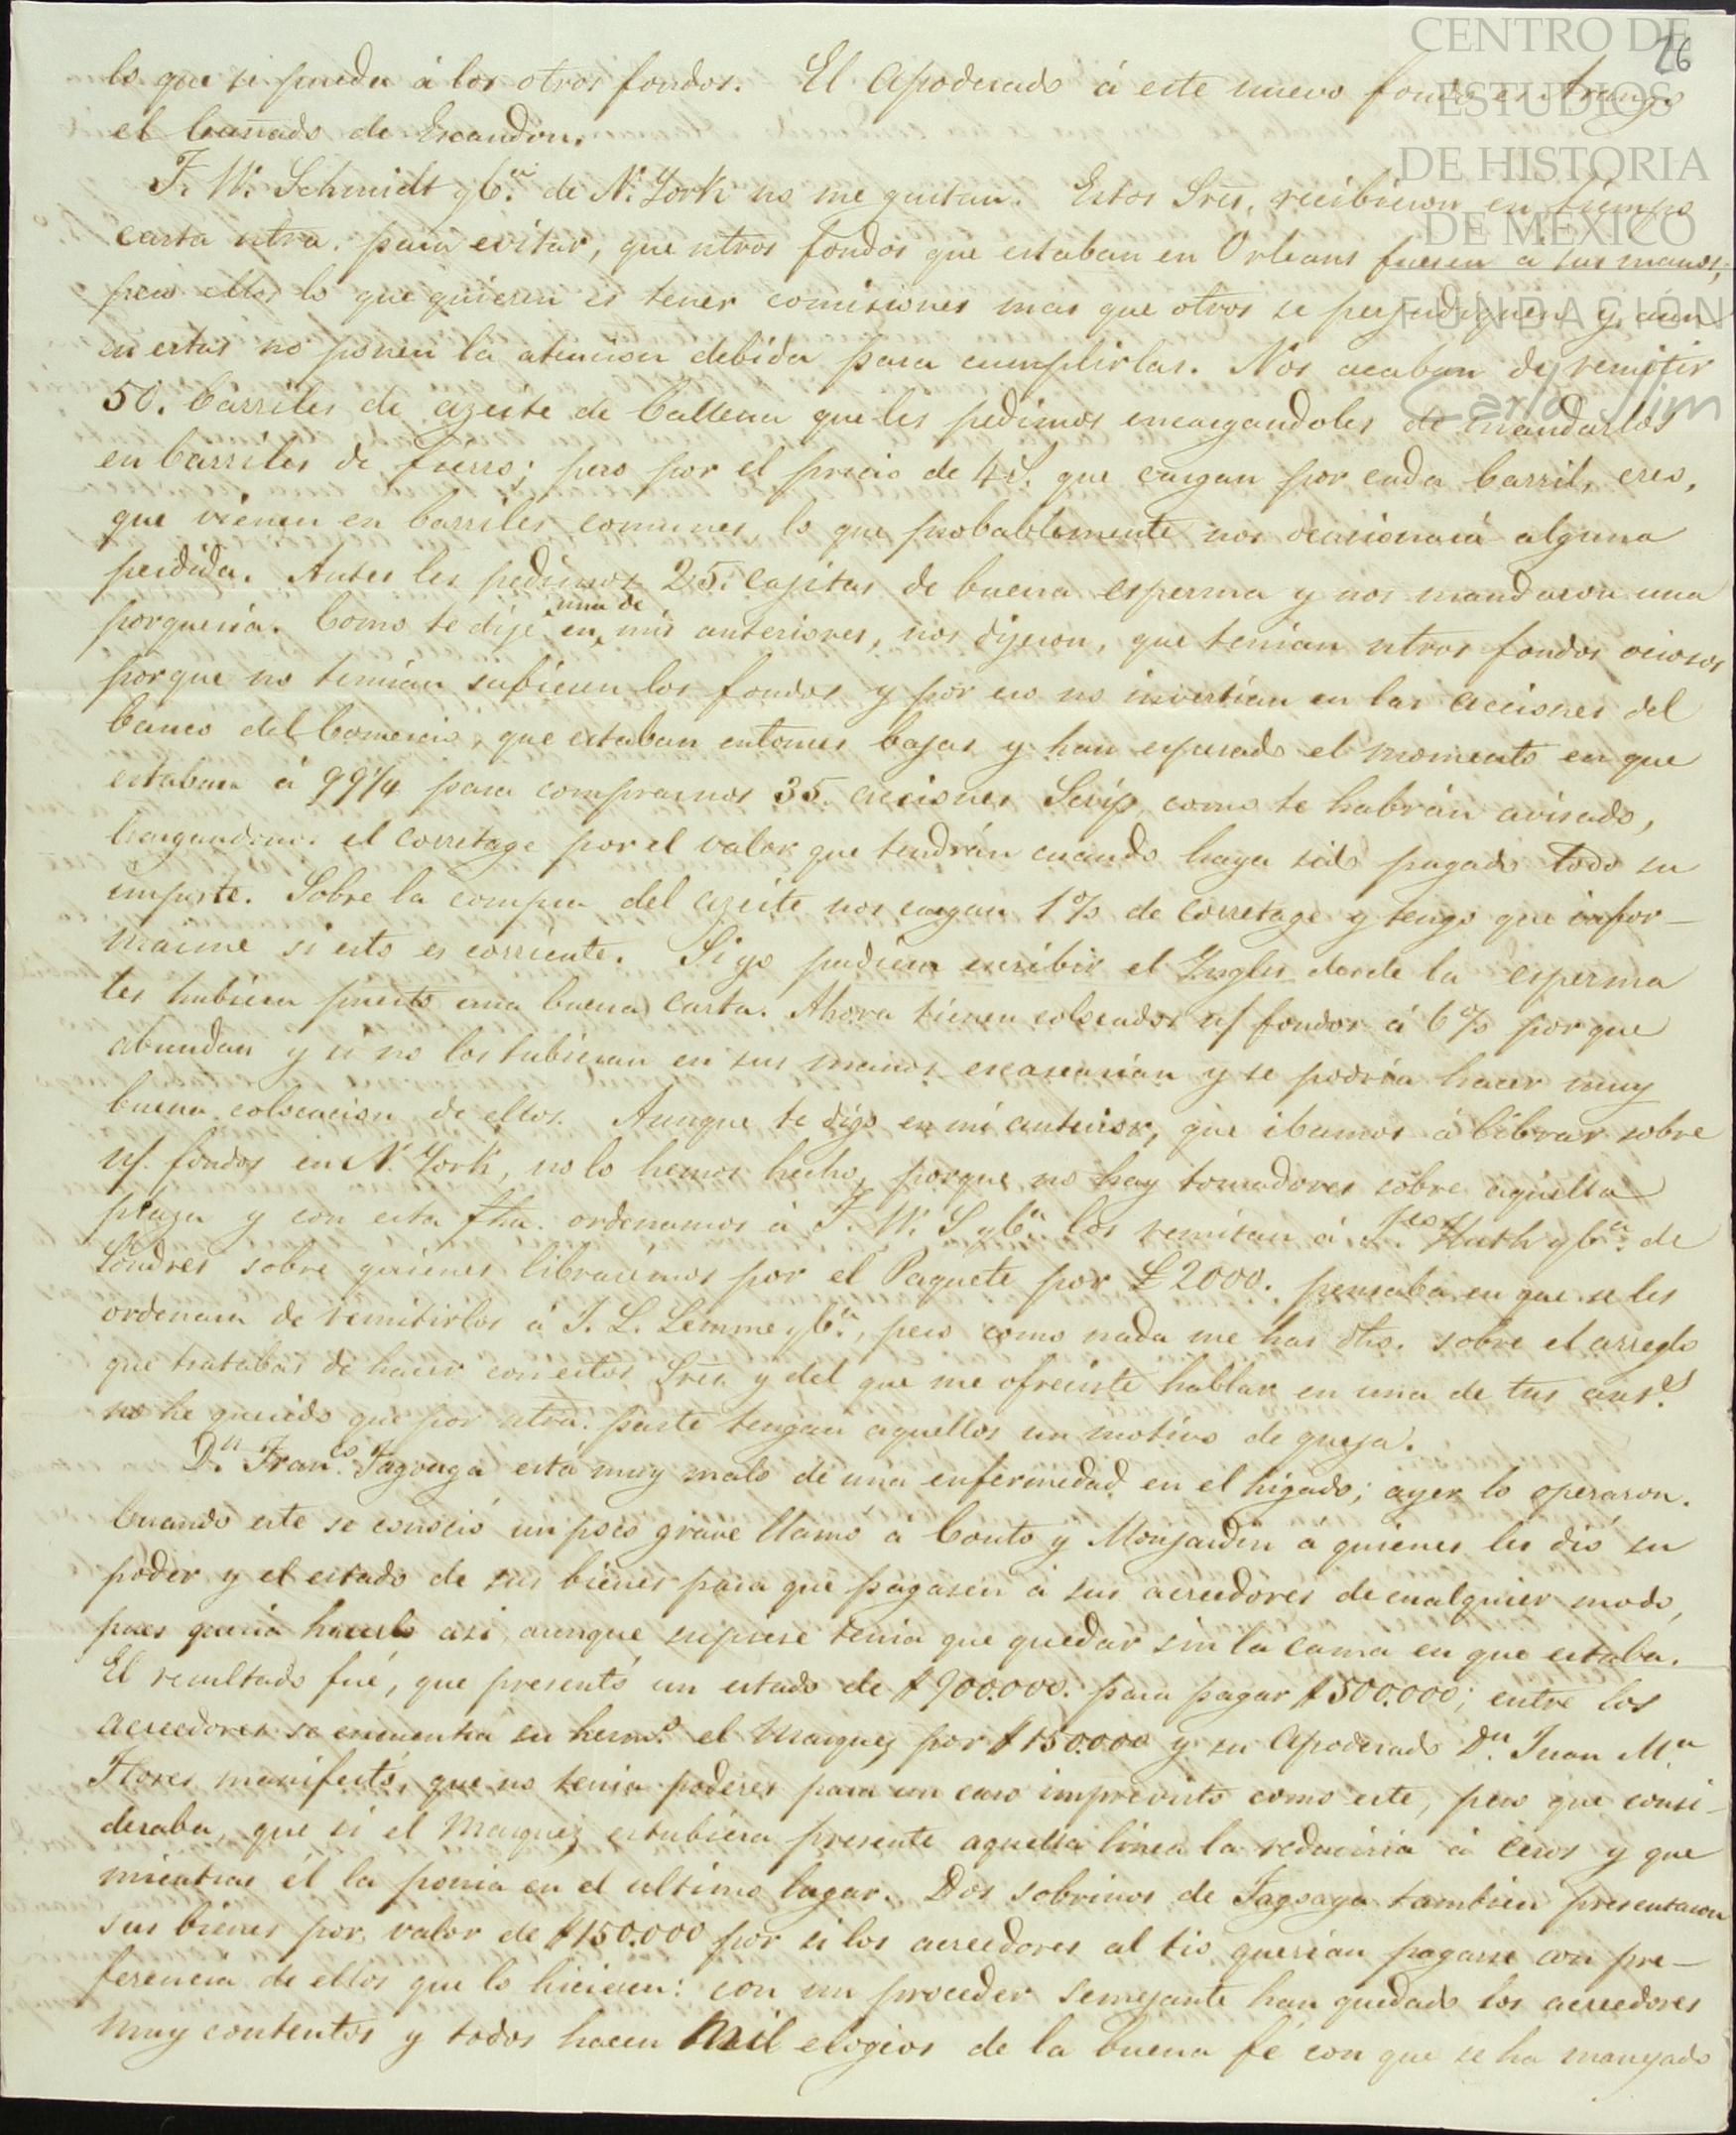 26
CENTRO DE
ESTUDIOS
DE HISTORIA
DE MEXICO
FUNDACIÓN
Carlos Slim
lo que se pueda á los otros fondos. El Apoderado á este nuevo fondo es
el bañado de Escandon.
F. W. Schmidt y Cª. de N. York no me gustan. Estos Sres. recibieron en tiempo
carta ntra. para evitar, que ntros fondos que estaban en Orleans fuesen á sus manos,
pero ellos lo que quieren es tener comisiones mas que otros se perjudiquen y aun
en estas no ponen la atencion debida para cumplirlas. Nos acaban de remitir
50. barriles de azeite de ballena que les pedimos encargandoles de mandarlos
en barriles de fierro; pero por el precio de 4 que cargan por cada barril, creo,
que vienen en barriles comunes, lo que probablemente nos ocasionará alguna
perdida. Antes les pedimos 25. cajitas de buena esperma y nos mandaron una
porqueria. Como te dije en una de mis anteriores, nos dijeron, que tenian ntros fondos ociosos
porque no temian subiesen los fondos y por eso no invertian en las acciones del
banco del Comercio, que estaban entonces bajas y han esperado el momento en que
estaban á 99 1/4 para comprarnos 35. acciones Scrip, como te habrán avisado,
cargandonos el corretage por el valor que tendrán cuando haya sido pagado todo su
importe. Sobre la compra del azeite nos cargan 1% de corretage y tengo que infor-
marme si esto es corriente. Si yo pudiera escribir el Ingles desde la esperma
les hubiera puesto una buena carta. Ahora tienen colocados n/ fondos á 6% porque
abundan y si no los tubieran en sus manos escasearian y se podria hacer muy
buena colocacion de ellos. Aunque te digo en mi anterior, que ibamos á librar sobre
n/. fondos en N. York, no lo hemos hecho, porque no hay tomadores sobre aquella
plaza y con esta fha. ordenamos á F. W. S. y Cª. los remitan á Huth y Cª. de
Londres sobre quienes libraremos por el Paquete por £2000. pensaba en que se les
ordenara de remitirlos á J. L. Lemme y Cª., pero como nada me has dho. sobre el arreglo
que tratabas de hacer con estos Sres. y del que me ofreciste hablar en una de tus ants.
no he querido que por ntra. parte tengan aquellos un motivo de queja.
Dn. Franco. Fagoaga está muy malo de una enfermedad en el higado; ayer lo operaron.
Cuando este se conoció un poco grave llamó á Couto y Monjardin á quienes les dió su
poder y el estado de sus bienes para que pagasen á sus acreedores de cualquier modo,
pues queria hacerlo asi aunque supiese tenia que quedar sin la cama en que estaba.
El resultado fué, que presentó un estado de $900.000. para pagar $500.000; entre los
acreedores se encuentra su hermo. el Marquez por $150.000 y su Apoderado Dn. Juan Mª.
Flores manifestó, que no tenia poderes para un caso imprevisto como este, pero que consi-
deraba, que si el Marquez estubiera presente aquella linea la reduciria á ceros y que
mientras él la ponia en el ultimo lugar. Dos sobrinos de Fagoaga tambien presentaron
sus bienes por valor de $150.000 por si los acreedores al tio querian pagarse con pre-
ferencia de ellos que lo hiciesen: con un proceder semejante han quedado los acreedores
muy contentos y todos hacen mil elogios de la buena fé con que se ha manejado